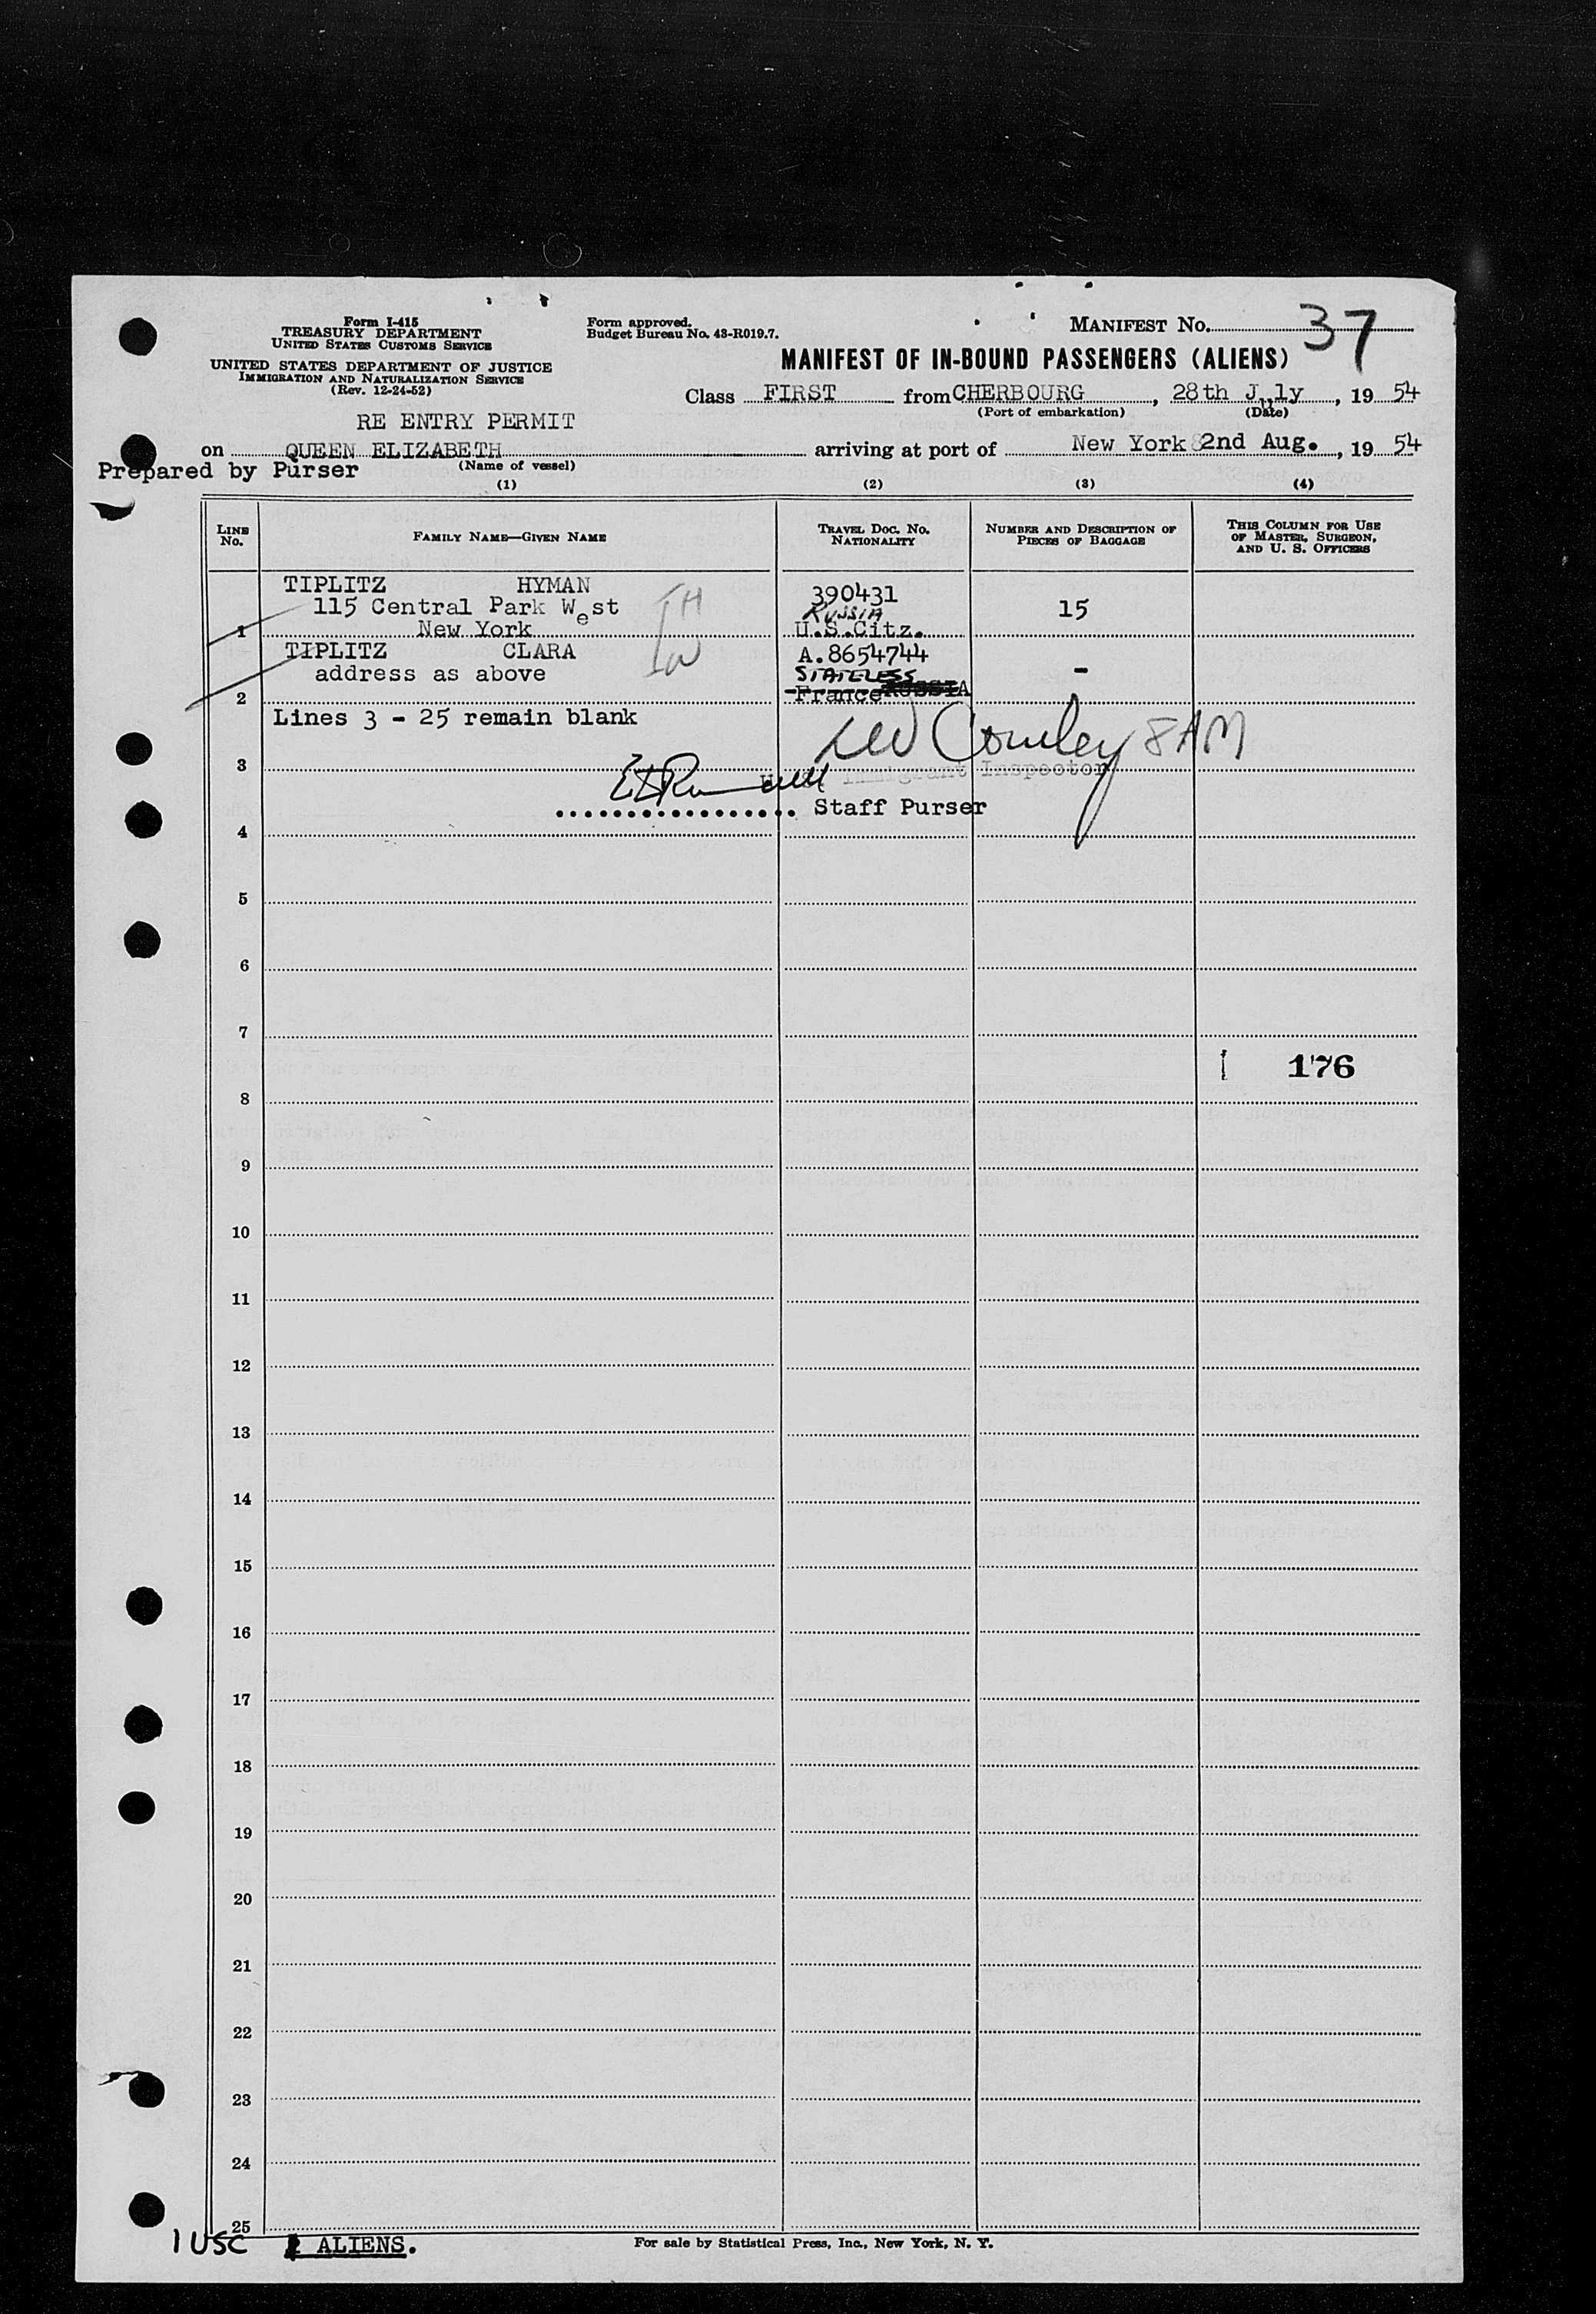 Form I-415
TREASURY DEPARTMENT
UNITED STATES CUSTOMS SERVICE
UNITED STATES DEPARTMENT OF JUSTICE
IMMIGRATION AND NATURALIZATION SERVICE
(Rev. 12-24-52)
Form approved.
Budget Bureau No. 43-R019.7.
MANIFEST No. 37
MANIFEST OF IN-BOUND PASSENGERS (ALIENS)
Class FIRST from CHERBOURG, 28th July, 19 54
(Port of embarkation) (Date)
RE ENTRY PERMIT
on QUEEN ELIZABETH arriving at port of New York 2nd Aug., 19 54
Prepared by Purser (Name of vessel)
(1) (2) (3) (4)
LINE No. FAMILY NAME—GIVEN NAME TRAVEL DOC. No. NATIONALITY NUMBER AND DESCRIPTION OF PIECES OF BAGGAGE THIS COLUMN FOR USE OF MASTER, SURGEON, AND U. S. OFFICERS
TIPLITZ HYMAN 390431
115 Central Park West RUSSIA 15
1 New York U.S.Citz.
TIPLITZ CLARA A.8654744
address as above STATELESS -
2 France RUSSIA
Lines 3 - 25 remain blank
8 AM
3 Immigrant Inspector
................. Staff Purser
4
5
6
7
176
8
9
10
11
12
13
14
15
16
17
18
19
20
21
22
23
24
25
1 USC ALIENS.
For sale by Statistical Press, Inc., New York, N. Y.